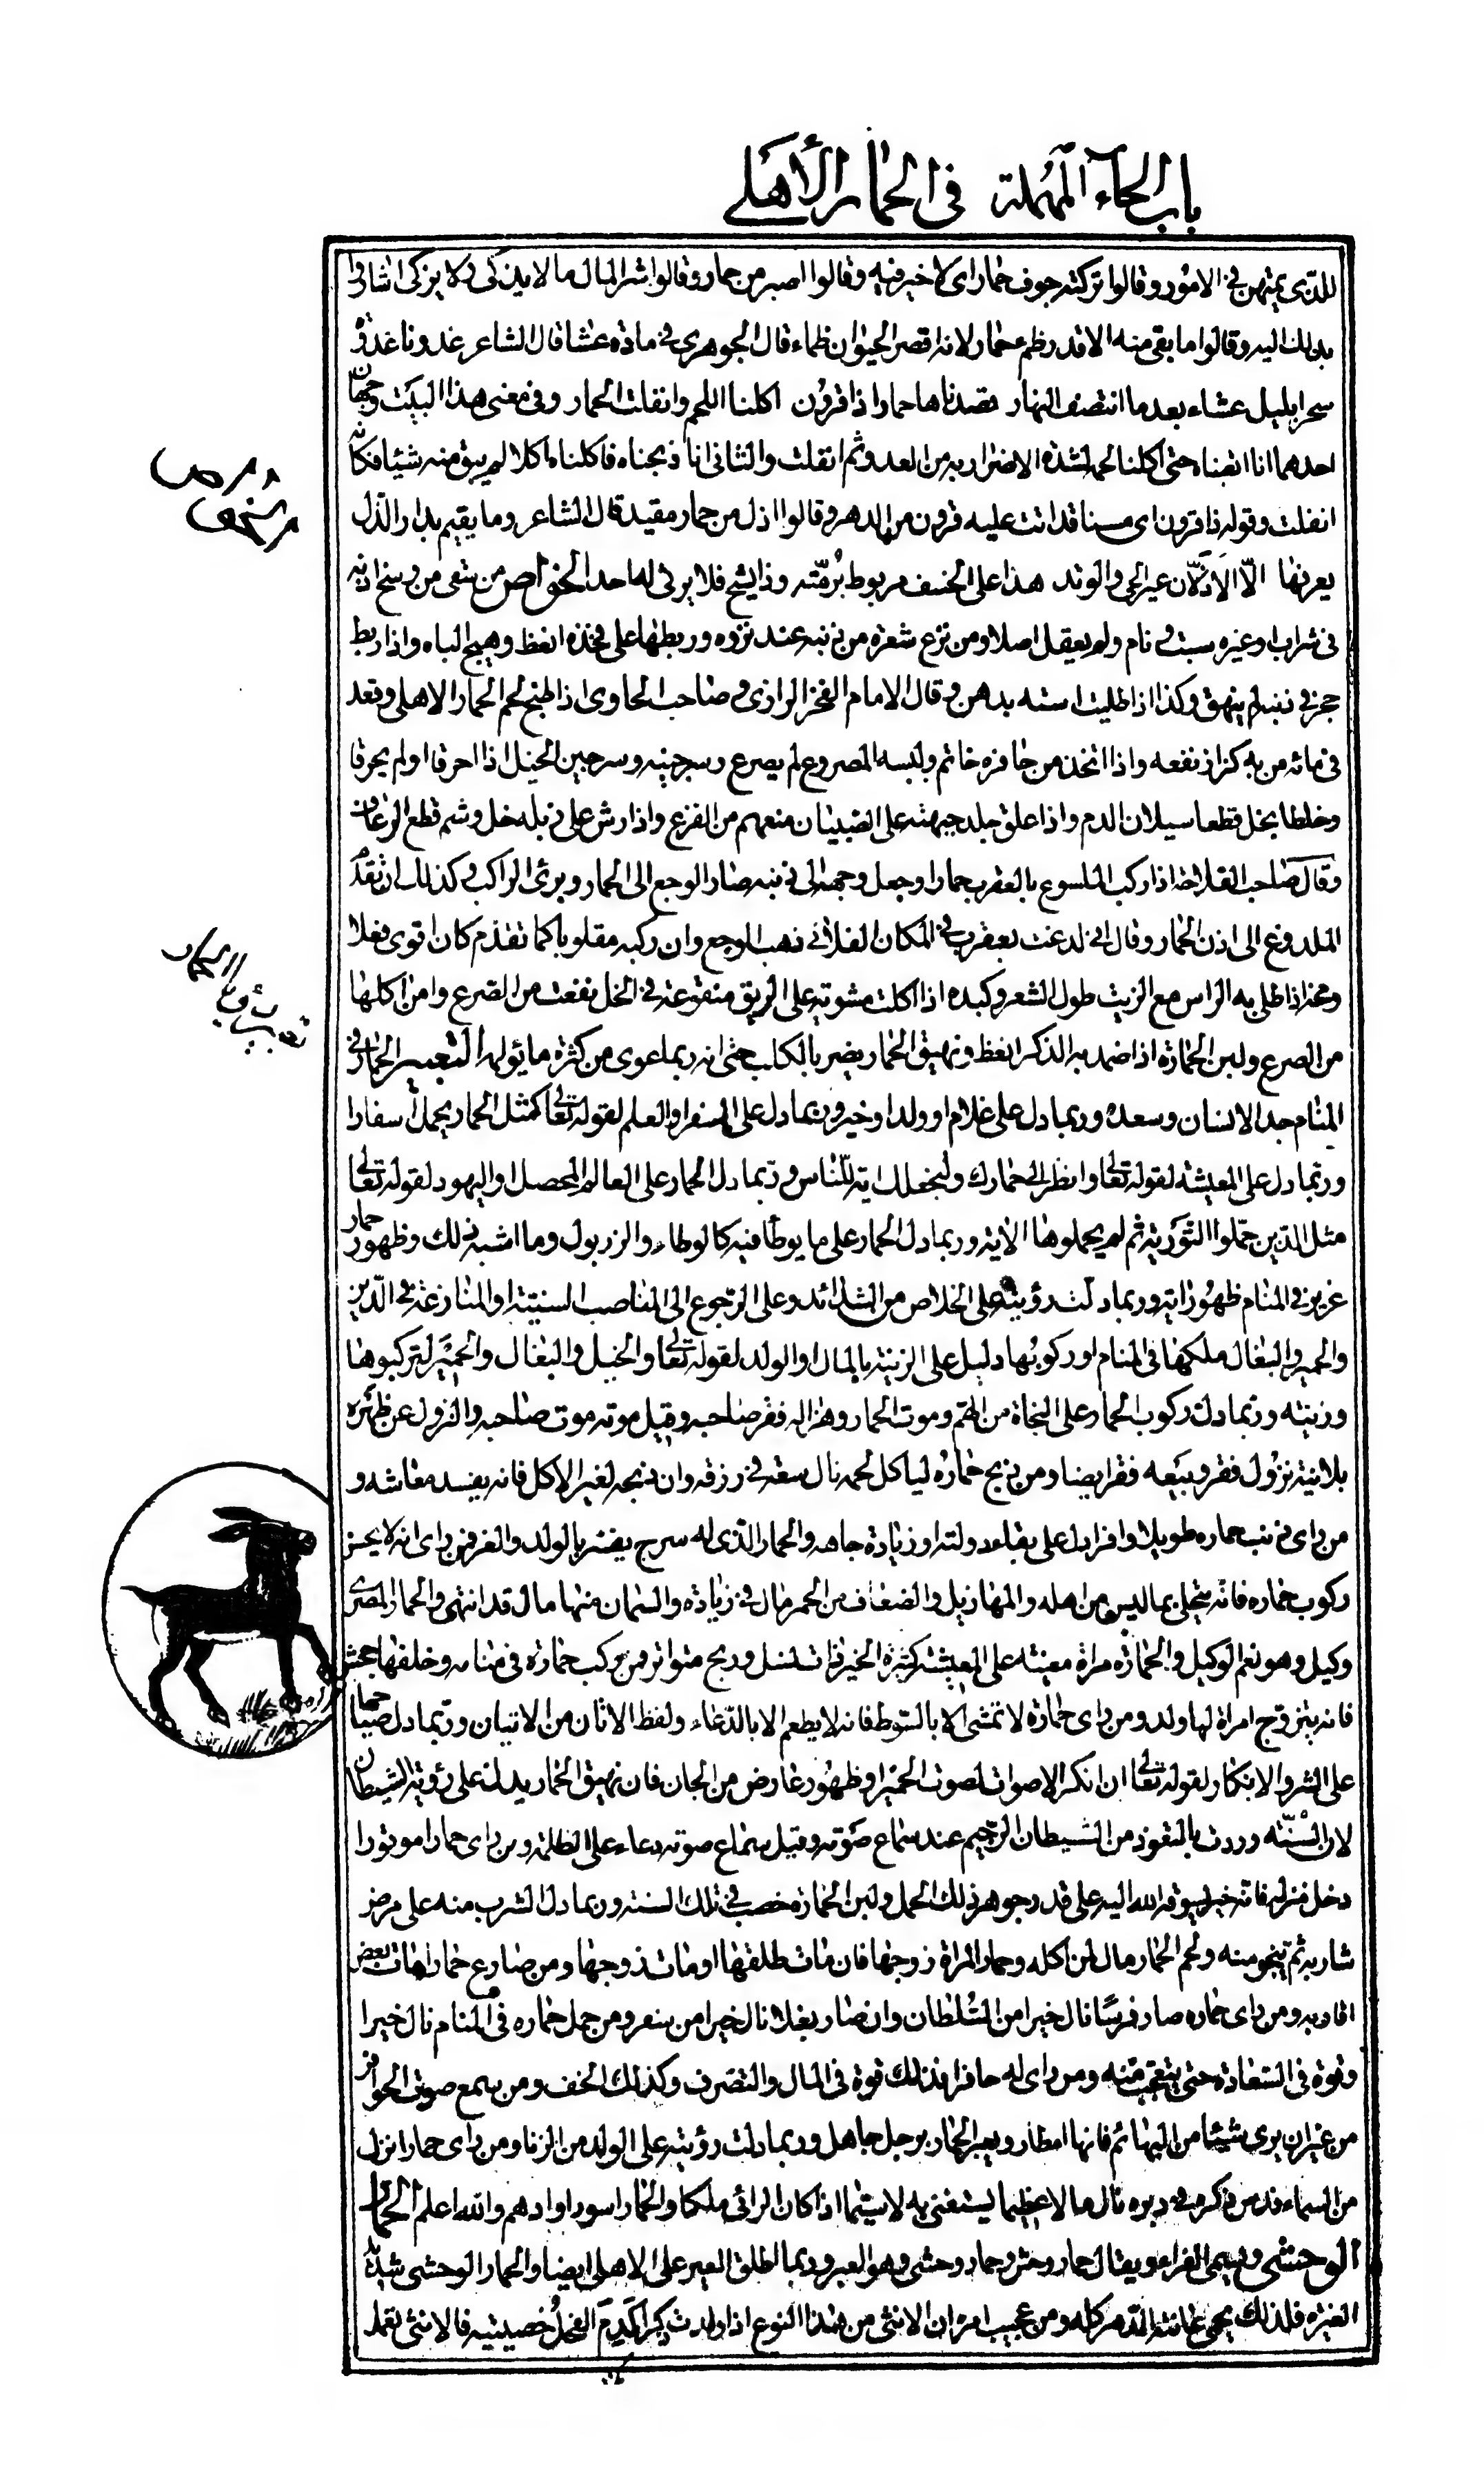 باب الحاء المهملة في الحمار الأهلي
للذي يمتهن في الامور وقالوا تركته جوف حمار اى لا خير فيه وقالوا اصبر من حمار وقالوا شر المال ما لا يذكى ولا يزكى اشاروا
بذلك اليه وقالوا ما بقى منه الا قدر ظمء حمار لانه اقصر الحيوان ظماء قال الجوهرى في مادة عشا قال الشاعر غدونا غدوة
سحرا بليل عشاء بعد ما انتصف النهار قصدناها حمارا ذا قرون اكلنا اللحم وانفلت الحمار وفى معنى هذا البيت وجهان
احدهما انا اتبعناه حتى اكلنا لحمه لشدة الاضرار به من العدو ثم انفلت والثانى انا ذبحناه فاكلناه اكلا لم يبق منه شيئا فكانه
انفلت وقوله ذا قرون اى مسنا قد اتت عليه قرون من الدهر وقالوا اذل من حمار مقيد قال الشاعر وما يقيم بدار الذل
يعرفها الا الاذلان عير الحى والوتد هذا على الخسف مربوط برمته وذا يشج فلا يرثى له احد الخواص من سقى من وسخ اذنه
فى شراب او غيره سبت و نام ولم يعقل اصلا ومن نزع شعرة من ذنبه عند نزوه وربطها على فخذه انعظ وهيج الباه واذا ربط
حجر في ذنبه لم ينهق وكذا اذا طليت استه بدهن وقال الامام الفخر الرازى و صاحب الحاوى اذا طبخ لحم الحمار الاهلى وقعد
فى مائه من به كزاز نفعه واذا اتخذ من حافره خاتم ولبسه المصروع لم يصرع وسرجينه وسرجين الخيل اذا احرقا او لم يحرقا
وخلطا بخل قطعا سيلان الدم واذا علق جلد جبهته على الصبيان منعهم من الفزع واذا رش على زبله خل وشم قطع الرعاف
وقال صاحب الفلاحة اذا ركب الملسوع بالعقرب حمارا وجعل وجهه الى ذنبه صار الوجع الى الحمار وبرئ الراكب و كذلك ان تقدم
الملدوغ الى اذن الحمار وقال انى لدغت بعقرب في المكان الفلانى ذهب الوجع وان ركبه مقلوبا كما تقدم كان اقوى فعلا
ومخه اذا طلى به الراس مع الزيت طول الشعر وكبده اذا اكلت مشوية على الريق منقوعة في الخل نفعت من الصرع وامن اكلها
من الصرع ولبن الحمارة اذا ضمد به الذكر انعظ ونهيق الحمار يضر بالكلب حتى انه ربما عوى من كثرة ما يؤلمه التعبير الحمار في
المنام جد الانسان وسعده وربما دل على غلام او ولد او خير وربما دل على السفر او العلم لقوله تعالى كمثل الحمار يحمل اسفارا
وربما دل على المعيشة لقوله تعالى وانظر الى حمارك ولنجعلك اية للناس وربما دل الحمار على العالم المحصل او اليهود لقوله تعالى
مثل الذين حملوا التورية ثم لم يحملوها الاية وربما دل الحمار على ما يوطأ فيه كالوطاء والزربول وما اشبه ذلك وظهور حمار
عزير في المنام ظهور اية وربما دلت رؤيته على الخلاص من الشدائد وعلى الرجوع الى المناصب السنية او المنازعة في الدين
والحمير والبغال ملكها في المنام او ركوبها دليل على الزينة بالمال او الولد لقوله تعالى والخيل والبغال والحمير لتركبوها
وزينة وربما دلت ركوب الحمار على النجاة من الهم وموت الحمار وهزاله فقر صاحبه وقيل موته موت صاحبه والنزول عن ظهره
بلا نية نزول فقر وبيعه فقر ايضا ومن ذبح حماره لياكل لحمه نال سعة في رزقه وان ذبحه لغير الاكل فانه يفسد معاشه و
من راى ذنب حماره طويلا وافرا دل على بقاء دولته او زيادة جاهه والحمار الذى له سرج يفسر بالولد والعز فمن راى انه لا يحسن
ركوب حماره فانه يتحلى بما ليس من اهله والمهازيل والضعاف من الحمر مال في زيادة والسمان منها مال قد انتهى والحمار المصرى
وكيل وهو نعم الوكيل والحمارة امراة معينة على المعيشة كثيرة الخير ذات نسل وربح متواتر ومن ركب حمارة في منامه وخلفها جحش
فانه يتزوج امراة لها ولد ومن راى حمارة لا تمشى الا بالسوط فانه لا يطعم الا بالدعاء ولفظ الاتان من الاتيان وربما دل صياحها
على الشر والانكار لقوله تعالى ان انكر الاصوات لصوت الحمير او ظهور عارض من الجان فان نهيق الحمار يدل على رؤية الشيطان
لان السنة وردت بالتعوذ من الشيطان الرجيم عند سماع صوته وقيل سماع صوته دعاء على الظلمة ومن راى حمارا موقورا
دخل منزله فانه خير يسوقه الله اليه على قدر جوهر ذلك الحمل ولبن الحمارة خصب في تلك السنة وربما دل الشرب منه على مرض
شاربه ثم ينجو منه ولحم الحمار مال لمن اكله وحمار المراة زوجها فان مات طلقها او مات زوجها ومن صارع حمارا مات بعض
اقاربه ومن راى حماره صار فرسا نال خيرا من السلطان وان صار بغلا نال خيرا من سفر ومن حمل حماره في المنام نال خيرا
وقوة في السعادة حتى يتعجب منه ومن راى له حافرا فذلك قوة في المال والتصرف وكذلك الخف ومن سمع صوت الحوافر
من غير ان يرى شيئا من البهائم فانها امطار ويعبر الحمار برجل جاهل وربما دلت رؤيته على الولد من الزنا ومن راى حمارا نزل
من السماء فدس ذكره في دبره نال مالا عظيما يستغنى به لا سيما اذا كان الرائى ملكا والحمار اسود او ادهم والله اعلم الحمار
الوحشى ويسمى الفراء ويقال حمار وحش وحمار وحشى وهو العير وربما اطلق العير على الاهلى ايضا والحمار الوحشى شديد
الغيرة فلذلك يحمى عانته الدهر كله ومن عجيب امره ان الانثى من هذا النوع اذا ولدت ذكرا كدم الفحل خصيتيه فالانثى تعمل